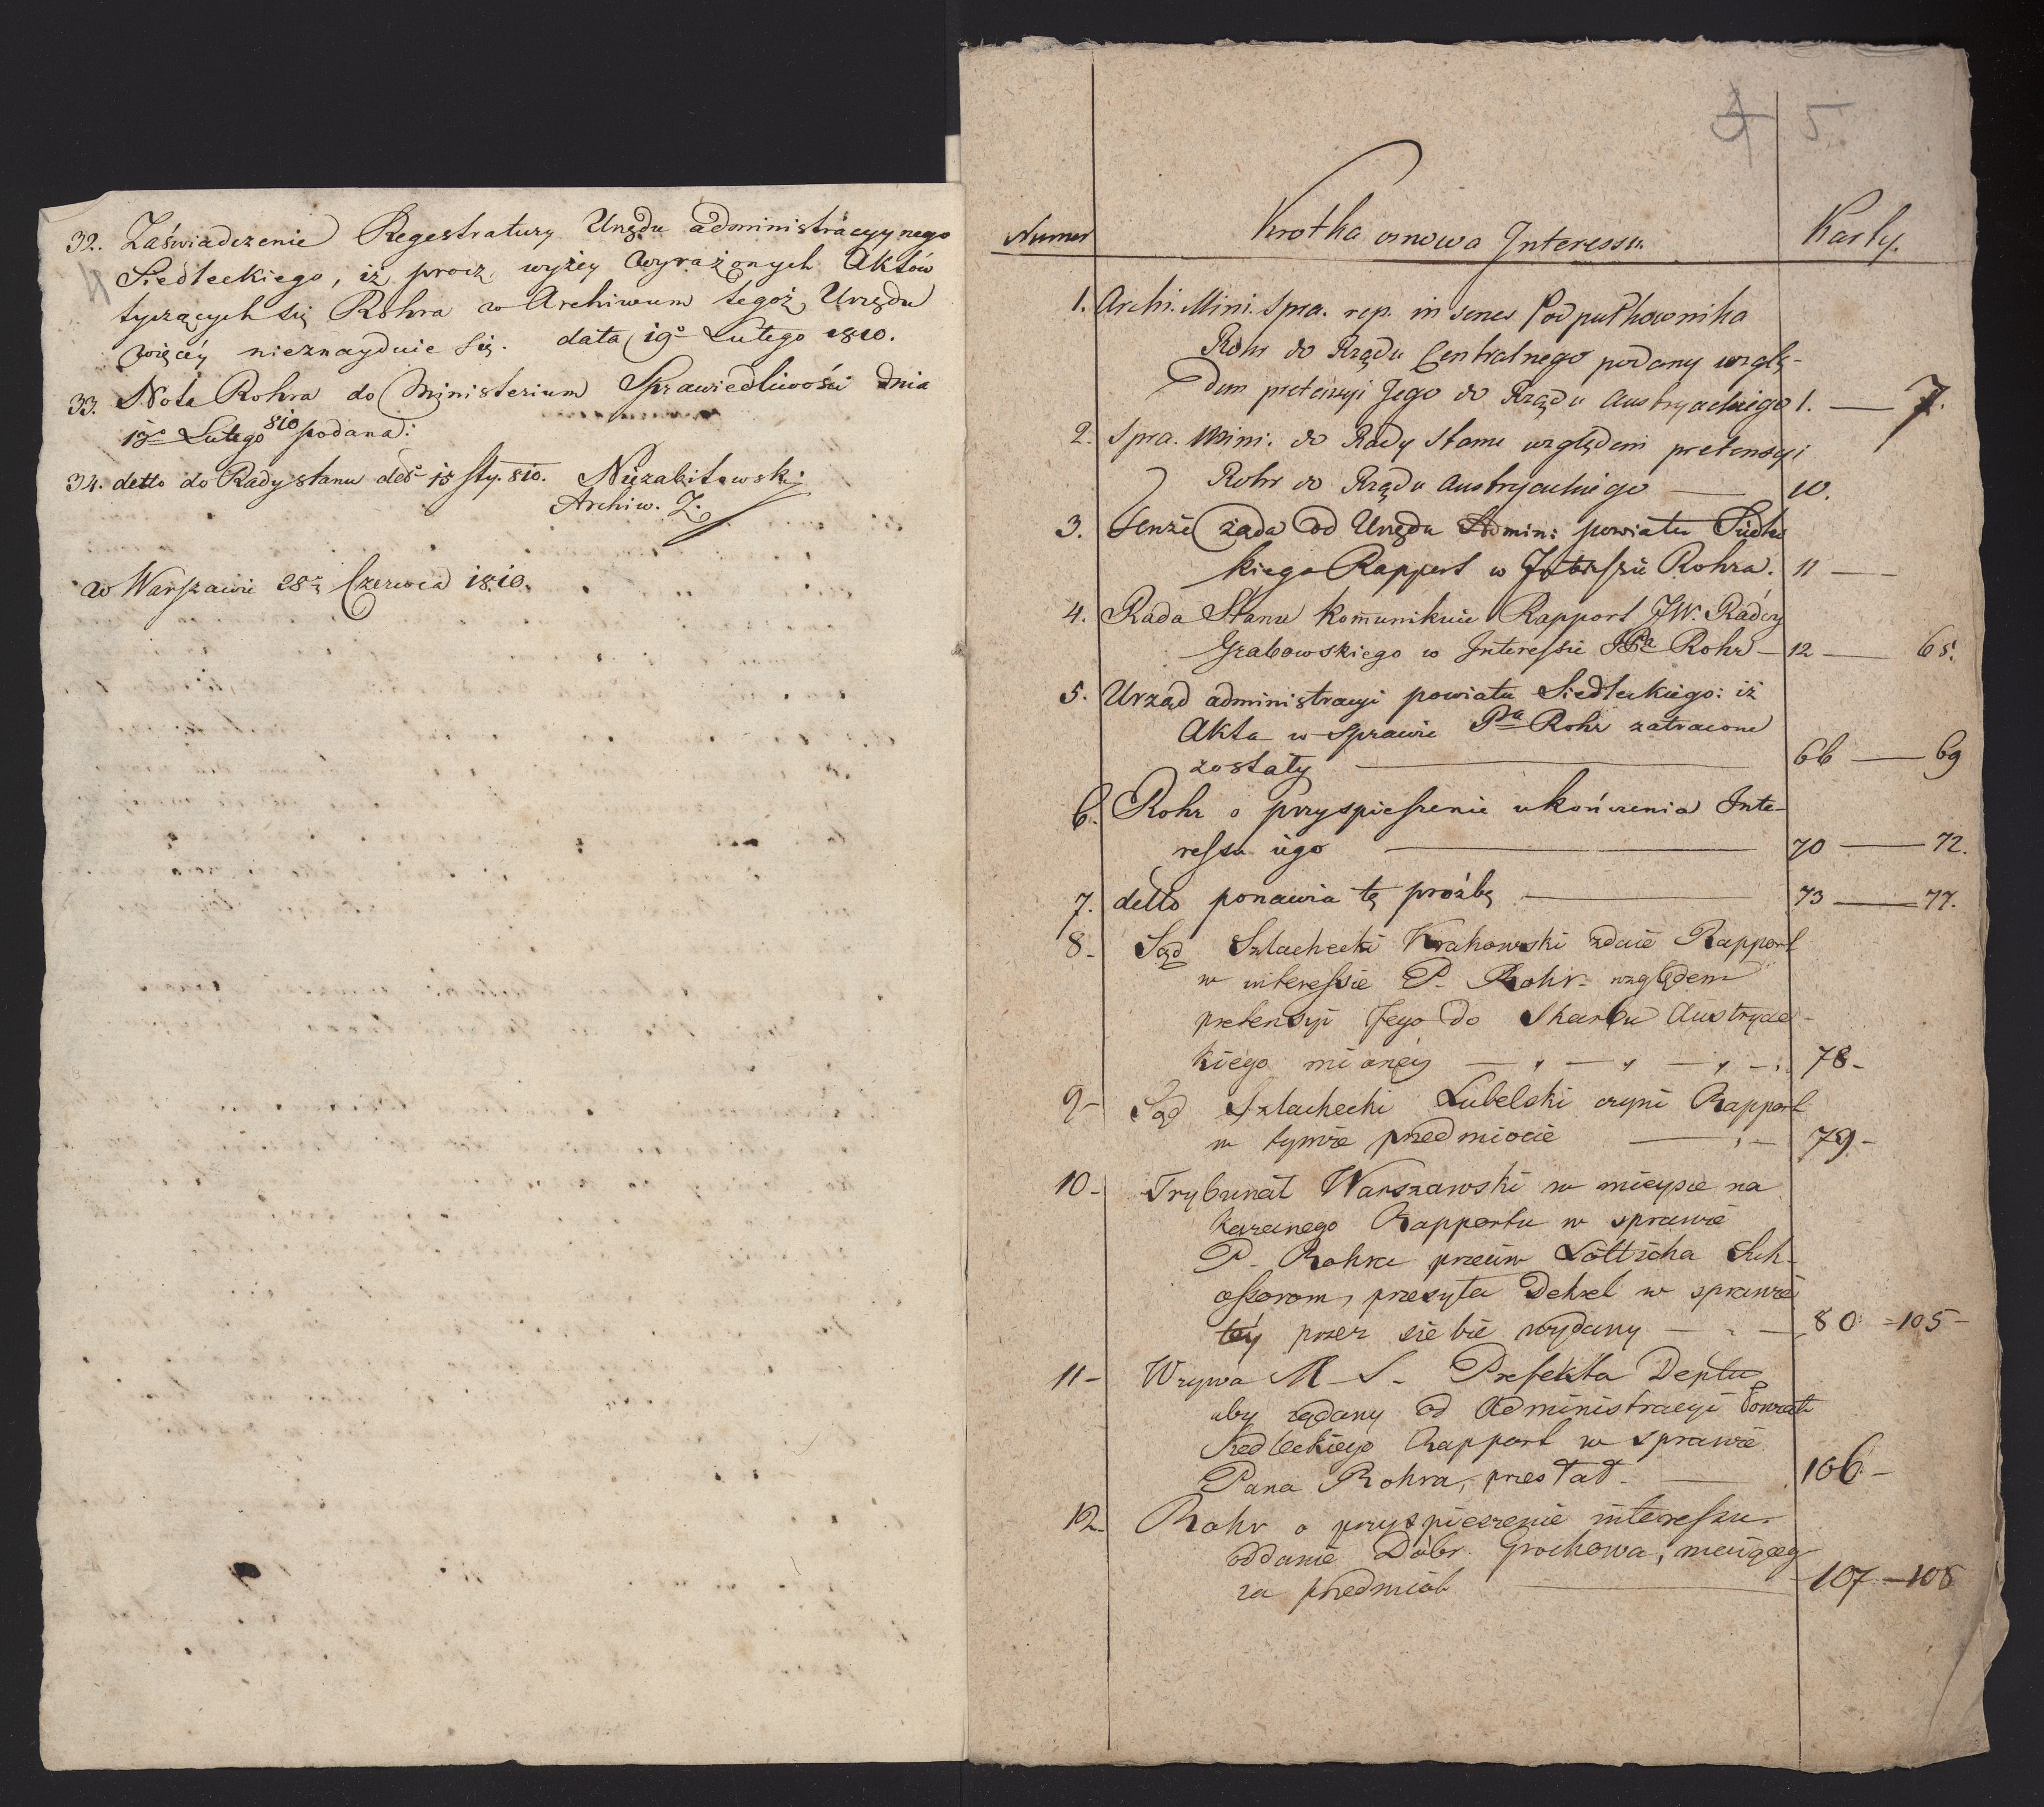 32. Zaświadczenie Regestratury Urzędu administracyynego
Siedleckiego, iż procz wyżey wyrażonych Aktów
tyczących się Rohra w Archiwum tegoż Urzędu
więcéy nieznayduie się. data 19° Lutego 1810.
33. Nota Rohra do Ministerium Sprawiedliwości dnia
15° Lutego 810 podana:
34. detto do Rady stanu deo 15 Sty. 810. Niezabitowski
Archiw. Z.
w Warszawie 28 Czerwca 1810.
5
Numer Krotka osnowa Interessu Karty.
1. Archi. Mini. Spra. rep. in Podpułkownika
Rohr do Rządu Centralnego podany wzglę-
dem pretensyi Jego do Rządu Austryackiego 1. — 7.
2. Spra. Mini. do Rady Stanu względem pretensyi
Rohr do Rządu Austryackiego — 10.
3. tenże żąda od Urzędu Admin: powiatu Siedlec
kiego Rapport w Interessie Rohra. 11 —
4. Rada Stanu kommunikuie Rapport JW. Radcy
Grabowskiego w Interessie JPa Rohr — 12 — 65.
5. Urząd administracyi powiatu Siedleckiego: iż
Akta w sprawie Pa Rohr zatracone
zostały — 66 — 69
6. Rohr o przyspieszenie ukończenia Inte-
ressu iego — 70 — 72.
7. detto ponawia tę prośbę — 73 — 77.
8 - Sąd Szlachecki Krakowski zdaie Rapport
w interessie P. Rohr względem
pretensyi Jego do Skarbu Austryac-
kiego mianey — 78 -
9 - Sąd Szlachecki Lubelski czyni Rapport
w tymże przedmiocie — 79 -
10 - Trybunał Warszawski w mieysce na
kazanego Rapportu w sprawie
P. Rohra przeciw Lötticha Suk-
cessorom, przesyła Dekret w sprawie
téy przez siebie wydany — 80 = 105 -
11 - Wzywa M. S. Prefekta Deptu
aby żądany od Administracyi Powiatu
Siedleckiego Rapport w sprawie
Pana Rohra, przesłał. — 106 -
12 - Rohr o przyspieszenie interessu
oddanie Dóbr Grochowa, maiącego
za przedmiot — 107 — 108